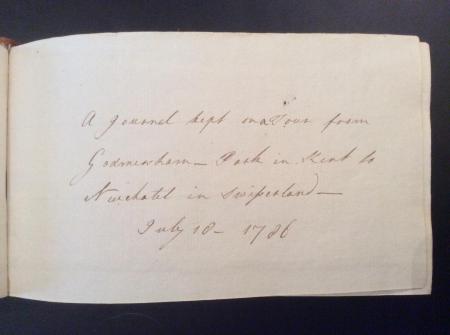 A Journel kept on a Tour from
Godmersham – Park in Kent to
Nuechatel in Swisserland –
July 18 – 1786